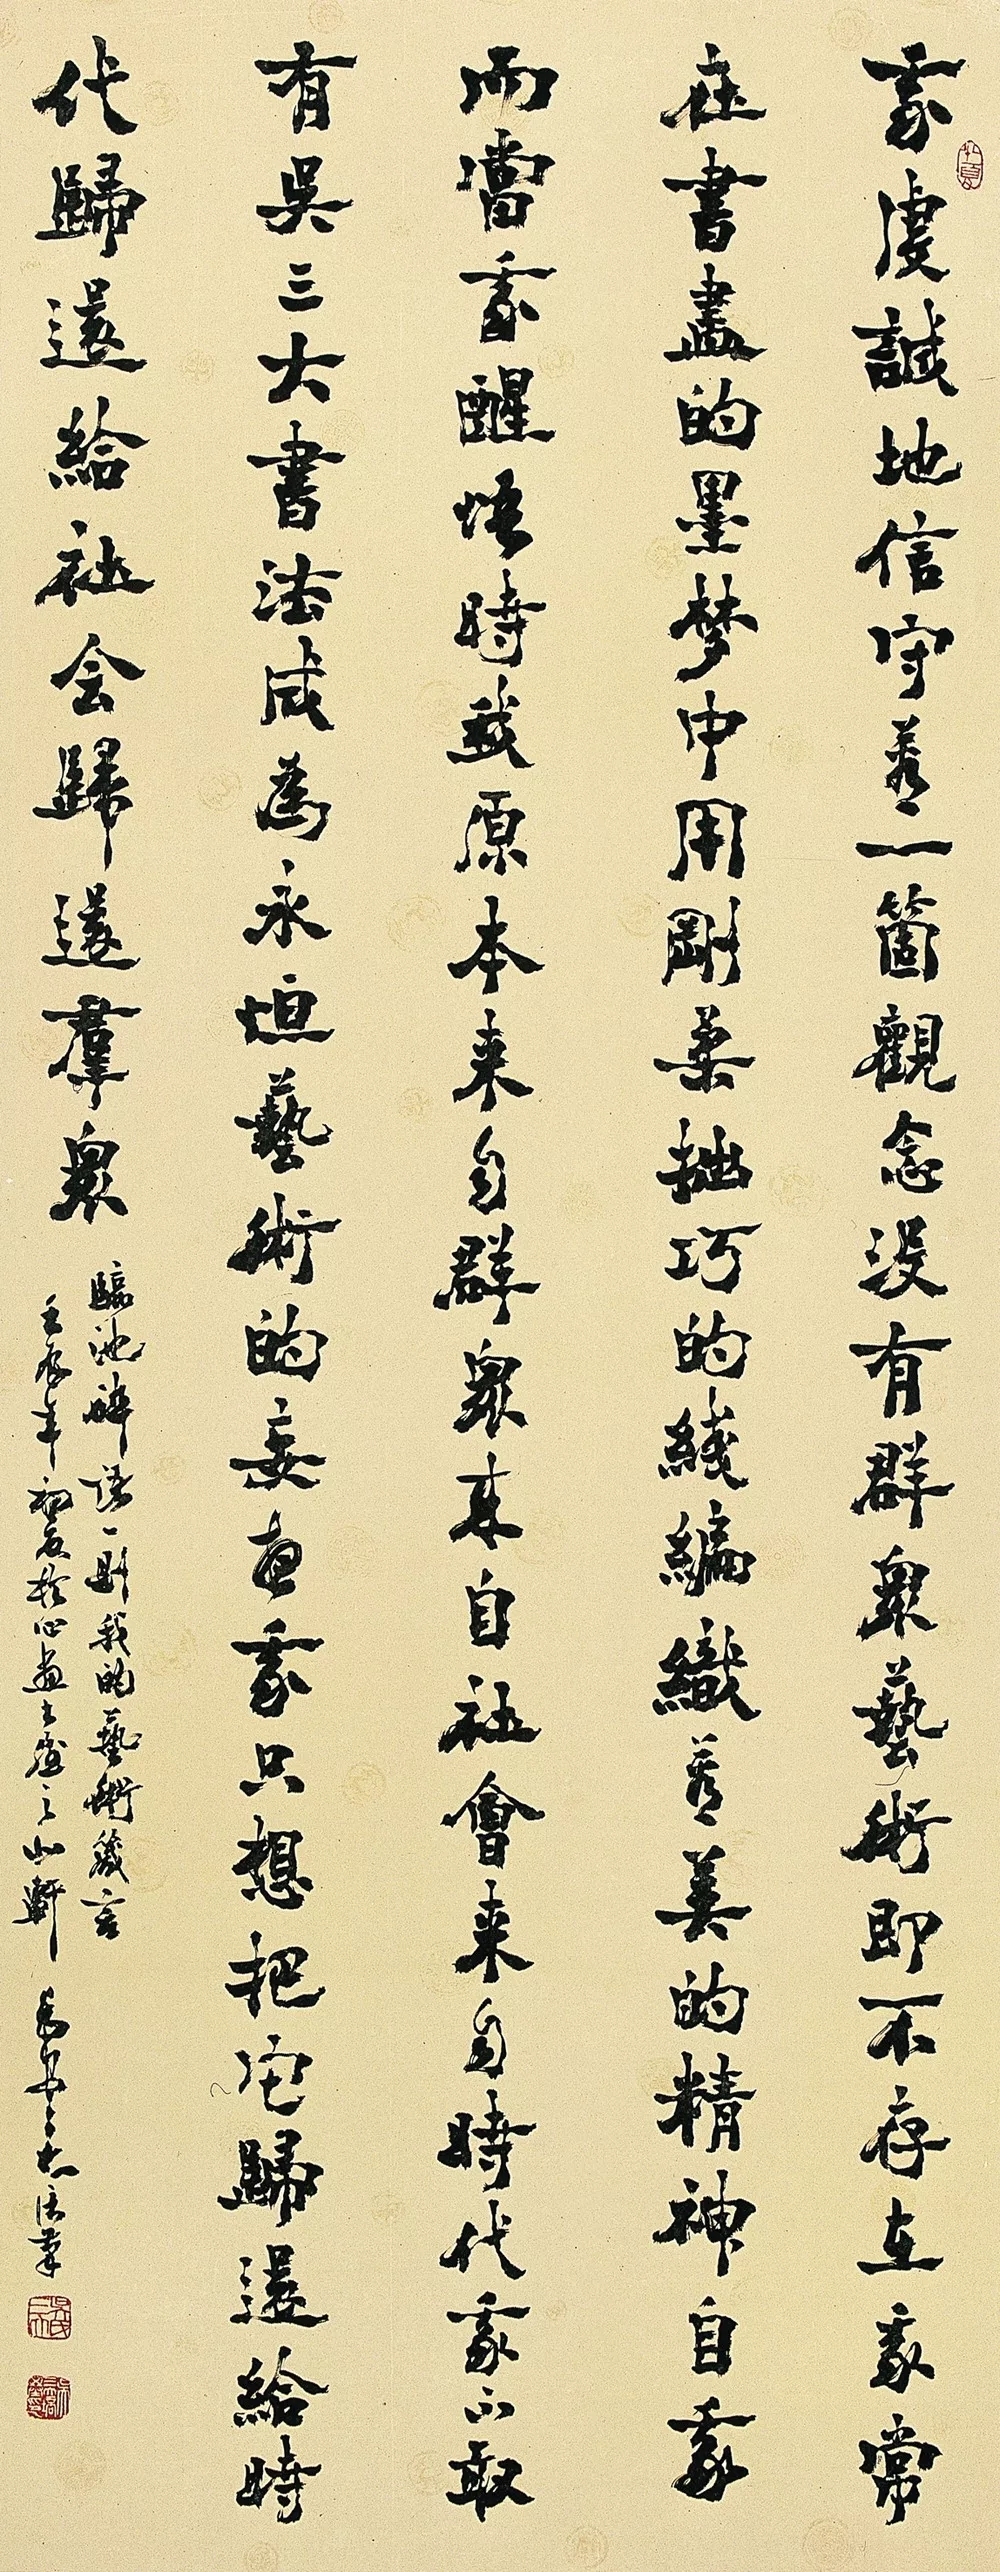 我虔誠地信守着一箇觀念没有群衆藝術即不存在我常
在書畫的墨梦中用剛柔拙巧的綫編織着美的精神自我
而當我醒悟時我原本来自群衆来自社會来自時代我不敢
有吴三大書法成為永恒藝術的妄我只想把它歸還給時
代歸還給社会歸還羣衆
臨池碎語一則我的藝術箴言
壬辰年初夏於心畫之山軒 長安三大筆